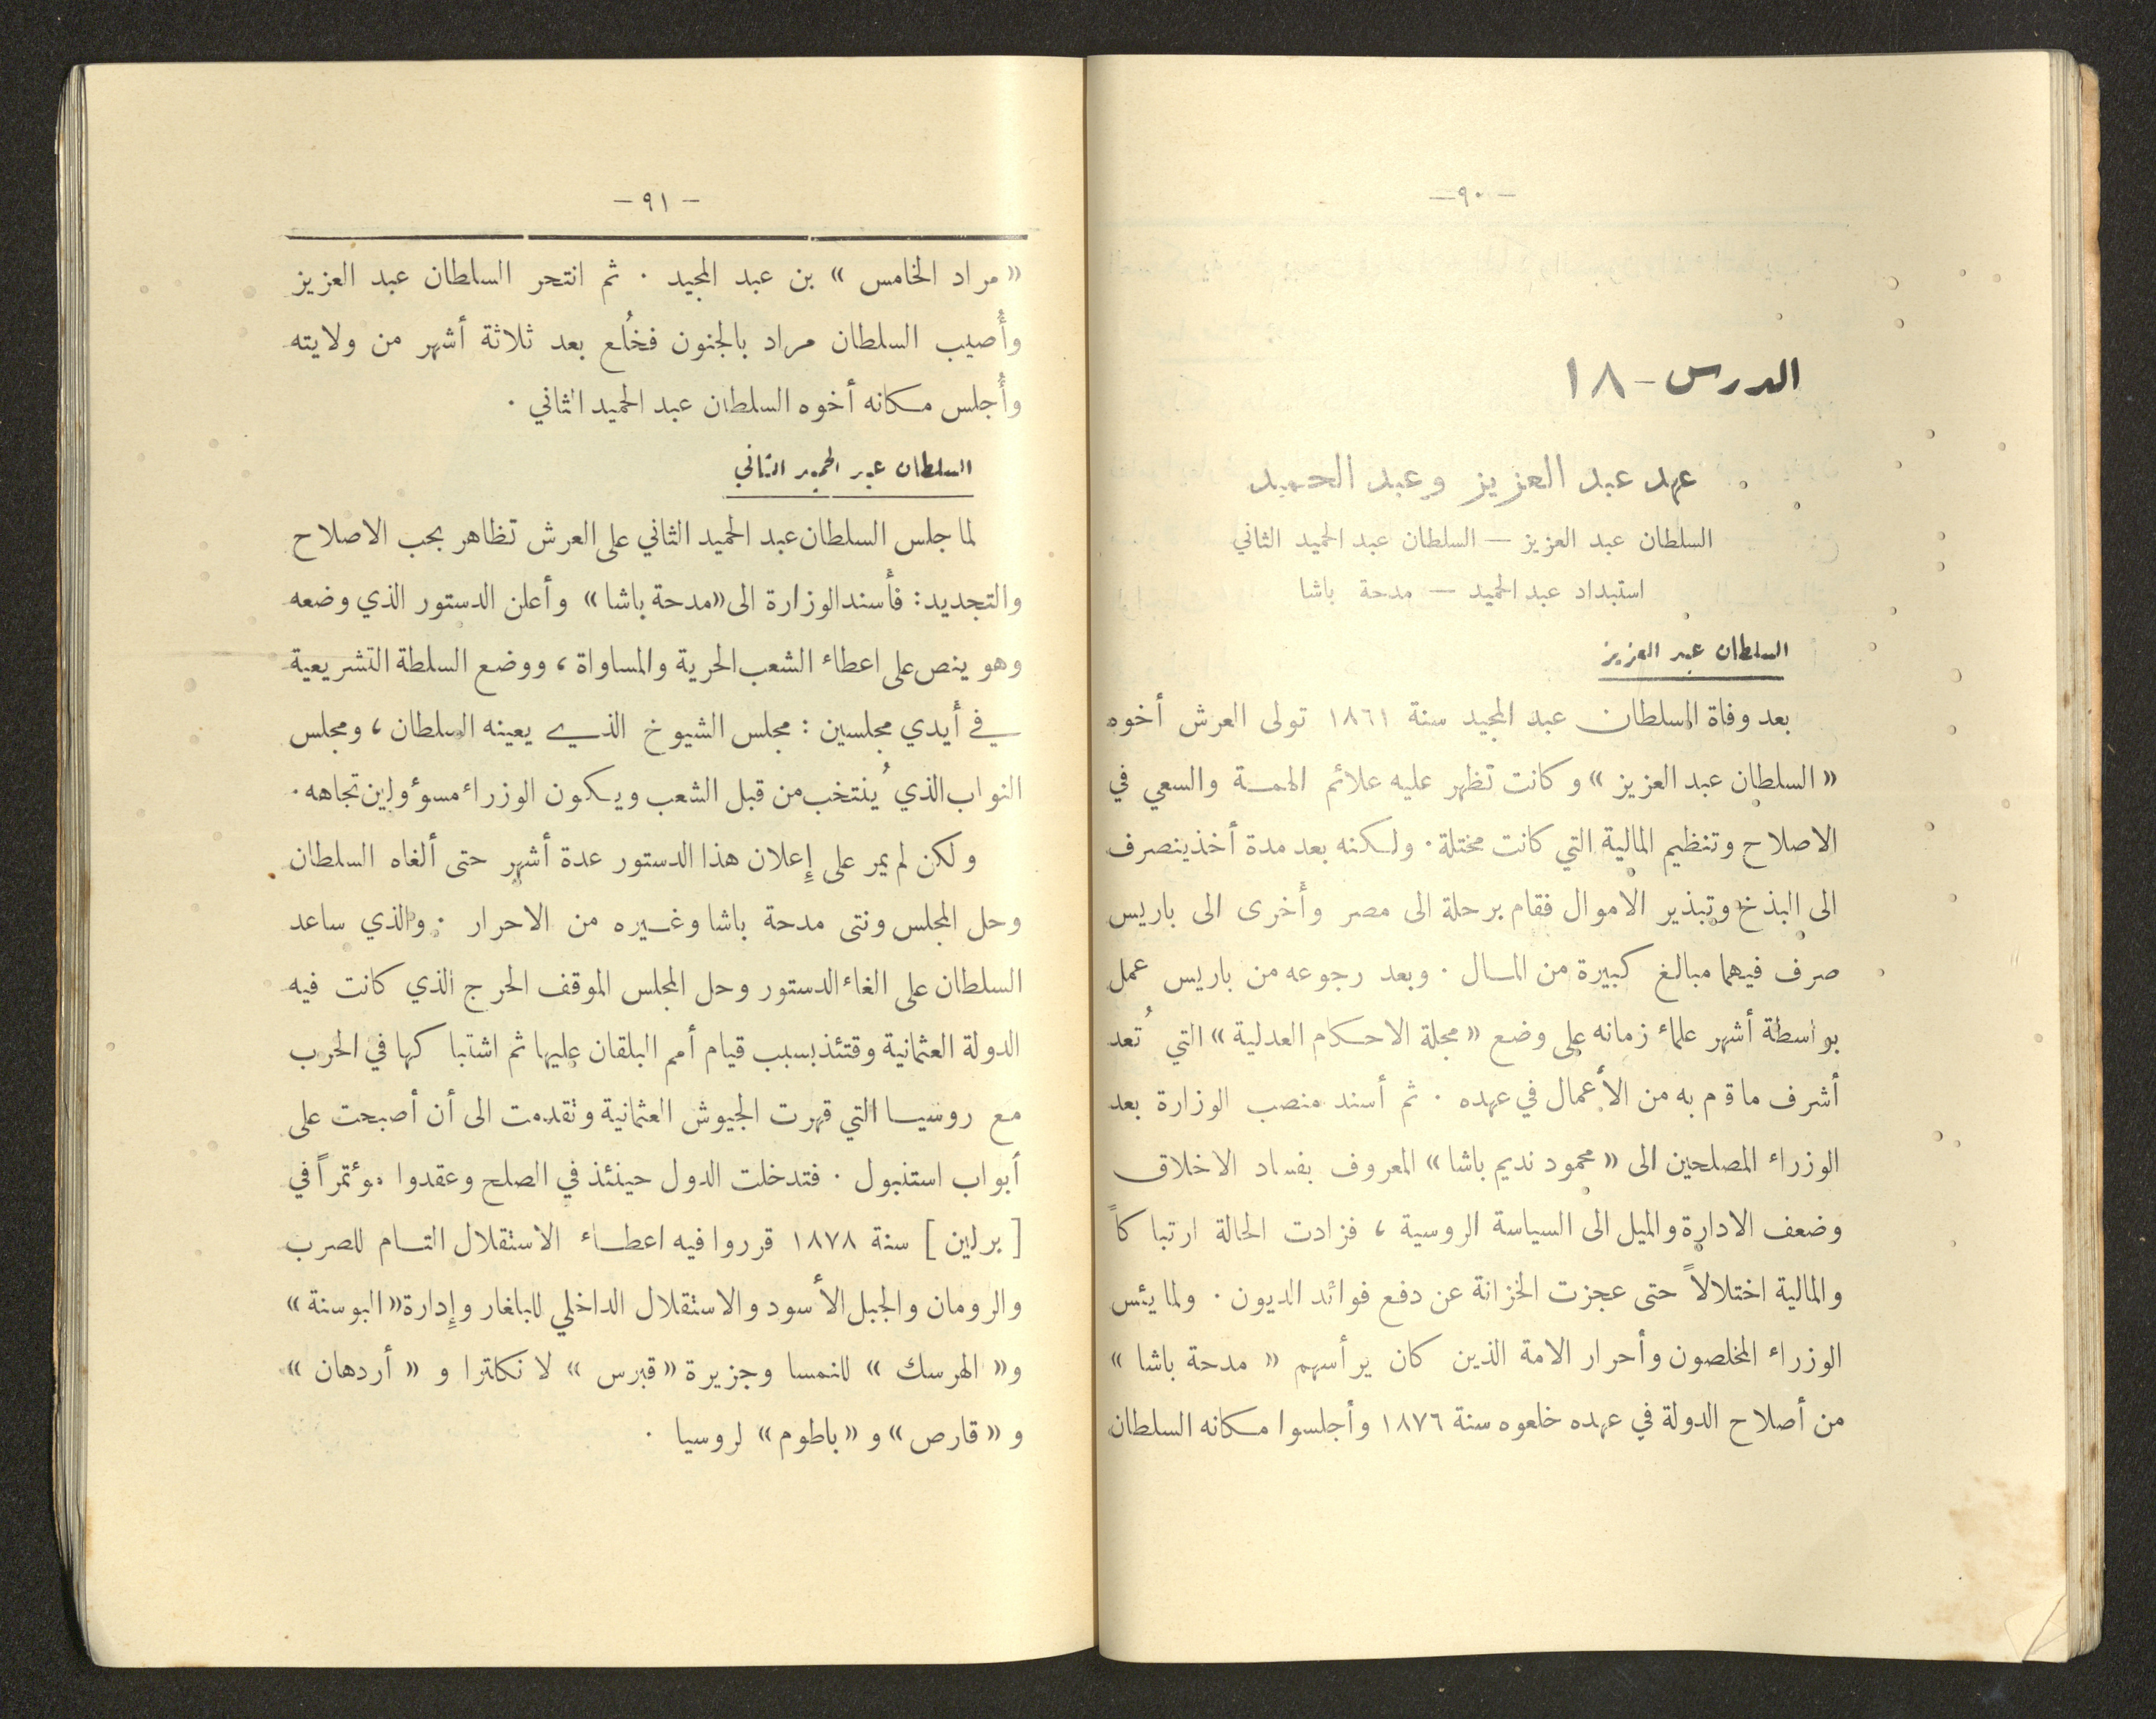 — ٩٠ —
الدرس - ١٨
عهد عبد العزيز وعبد الحميد
السلطان عبد العزيز — السلطان عبد الحميد الثاني
استبداد عبد الحميد — مدحة باشا
السلطان عبد العزيز
بعد وفاة السلطان عبد المجيد سنة ١٨٦١ تولى العرش أخوه
« السلطان عبد العزيز » وكانت تظهر عليه علائم الهمة والسعي في
الاصلاح وتنظيم المالية التي كانت مختلة . ولكنه بعد مدة أخذ ينصرف
الى البذخ وتبذير الاموال فقام برحلة الى مصر وأُخرى الى باريس
صرف فيهما مبالغ كبيرة من المال . وبعد رجوعه من باريس عمل
بواسطة أشهر علماء زمانه على وضع « مجلة الاحكام العدلية » التي تُعد
أشرف ما قم به من الأعمال في عهده . ثم أسند منصب الوزارة بعد
الوزراء المصلحين الى « محمود نديم باشا » المعروف بفساد الاخلاق
وضعف الادارة والميل الى السياسة الروسية ، فزادت الحالة ارتباكاً
والمالية اختلالاً حتى عجزت الخزانة عن دفع فوائد الديون . ولما يئس
الوزراء المخلصون وأحرار الامة الذين كان يرأسهم « مدحة باشا »
من أصلاح الدولة في عهده خلعوه سنة ١٨٧٦ وأجلسوا مكانه السلطان
— ٩١ —
« مراد الخامس » بن عبد المجيد . ثم انتحر السلطان عبد العزيز
وأُصيب السلطان مراد بالجنون فخُلع بعد ثلاثة أشهر من ولايته
وأُجلس مكانه أخوه السلطان عبد الحميد الثاني .
السلطان عبد الحميد الثاني
لما جلس السلطان عبد الحميد الثاني على العرش تظاهر بحب الاصلاح
والتجديد : فأسند الوزارة الى « مدحة باشا » وأعلن الدستور الذي وضعه
وهو ينص على اعطاء الشعب الحرية والمساواة ، ووضع السلطة التشريعية
في أيدي مجلسين : مجلس الشيوخ الذي يعينه السلطان ، ومجلس
النواب الذي يُنتخب من قبل الشعب ويكون الوزراء مسوءولين تجاهه .
ولكن لم يمر على إِعلان هذا الدستور عدة أشهر حتى ألغاه السلطان
وحل المجلس ونتى مدحة باشا وغيره من الاحرار . والذي ساعد
السلطان على الغاء الدستور وحل المجلس الموقف الحرج الذي كانت فيه
الدولة العثمانية وقتئذ بسبب قيام أمم البلقان عليها ثم اشتباكها في الحرب
مع روسيا التي قهرت الجيوش العثمانية وتقدمت الى أن أصبحت على
أبواب استنبول . فتدخلت الدول حينئذ في الصلح وعقدوا موءتمراً في
[ برلين ] سنة ١٨٧٨ قرروا فيه اعطاء الاستقلال التام للصرب
والرومان والجبل الأسود والاستقلال الداخلي للبلغار وإِدارة « البوسنة »
و « الهرسك » للنمسا وجزيرة « قبرس » لانكلترا و « أردهان »
و « قارص » و « باطوم » لروسيا .